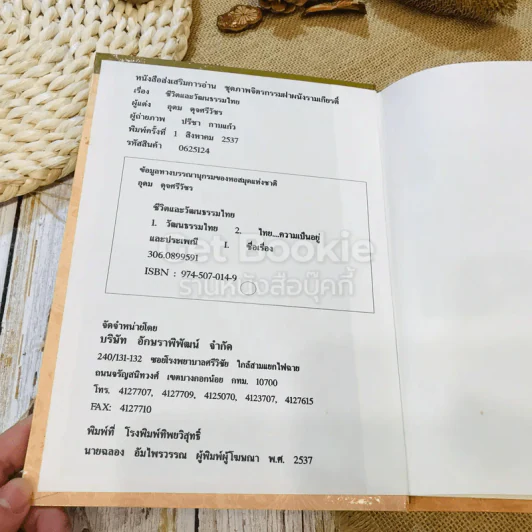 หนังสือส่งเสริมการอ่าน ชุดภาพจิตรกรรมฝาผนังรามเกียรติ์
เรื่อง ชีวิตและวัฒนธรรมไทย
ผู้แต่ง อุดม ดุจศรีวัชร
ผู้ถ่ายภาพ ปรีชา กาบแก้ว
พิมพ์ครั้งที่ 1 สิงหาคม 2537
รหัสสินค้า 0625124
ข้อมูลทางบรรณานุกรมของหอสมุดแห่งชาติ
อุดม ดุจศรีวัชร
ชีวิตและวัฒนธรรมไทย
1. วัฒนธรรมไทย 2. ไทย...ความเป็นอยู่
และประเพณี I. ชื่อเรื่อง
306.0899591
ISBN : 974-507-014-9
Get Bookie
ร้านหนังสือบุ๊คกี้
จัดจำหน่ายโดย
บริษัท อักษราพิพัฒน์ จำกัด
240/131-132 ซอยโรงพยาบาลศรีวิชัย ใกล้สามแยกไฟฉาย
ถนนจรัญสนิทวงศ์ เขตบางกอกน้อย กทม. 10700
โทร. 4127707, 4127709, 4125070, 4123707, 4127615
FAX: 4127710
พิมพ์ที่ โรงพิมพ์ทิพยวิสุทธิ์
นายฉลอง อัมไพรวรรณ ผู้พิมพ์ผู้โฆษณา พ.ศ. 2537